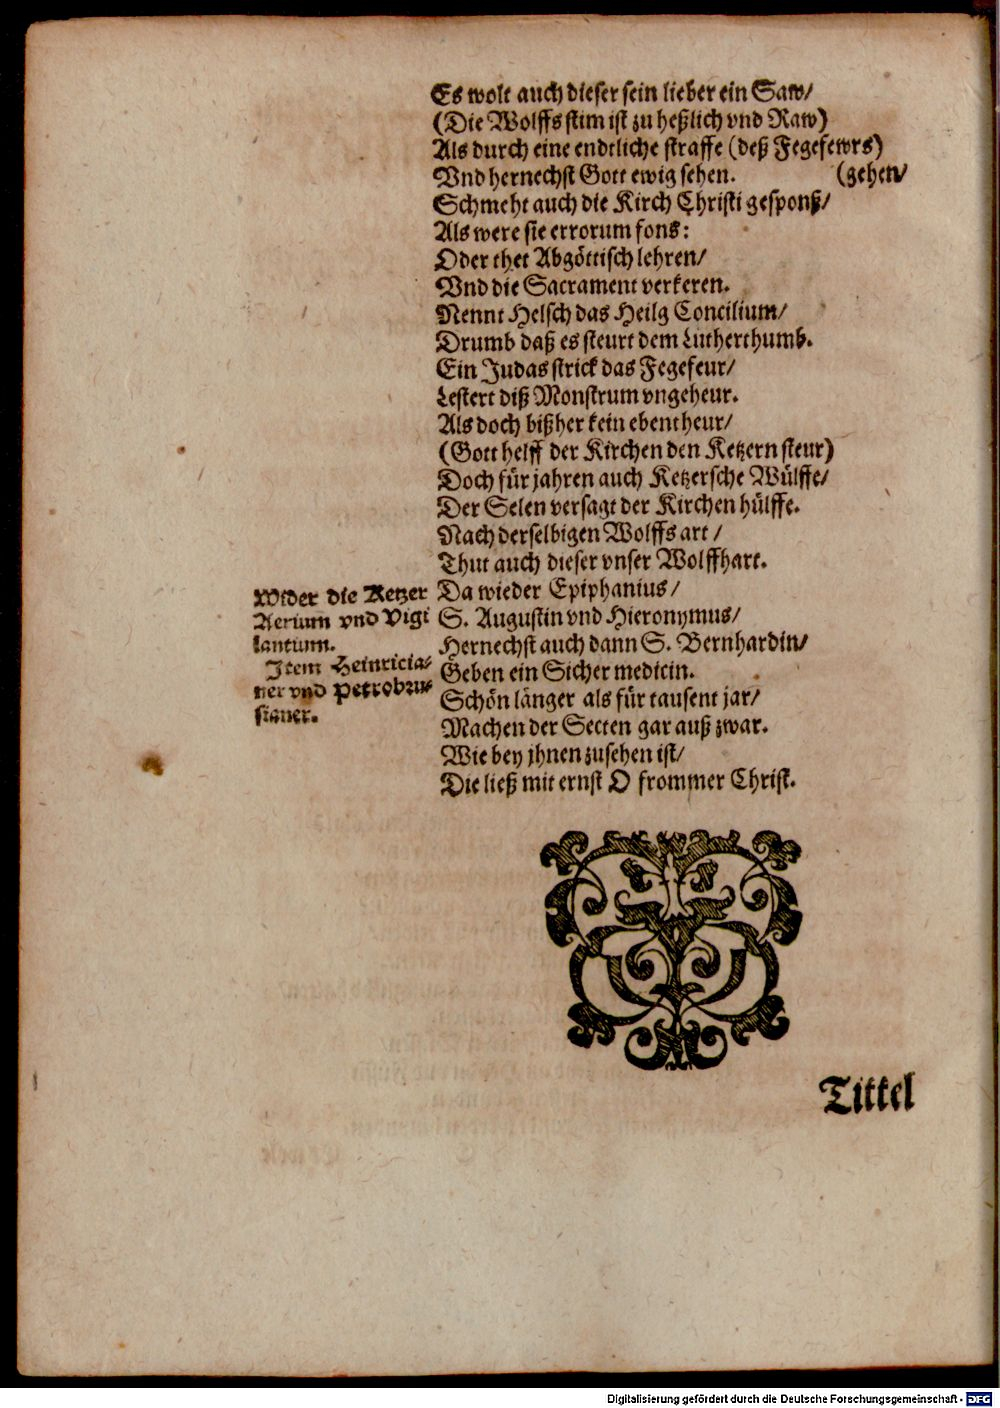 Es wolt auch dieser sein lieber ein Saw/
(Die Wolffs stim ist zu heßlich vnd Raw)
Als durch eine endtliche straffe (deß Fegefewrs)
Vnd hernechst Gott ewig sehen. (gehen/
Schmeht auch die Kirch Christi gesponß/
Als were sie errorum fons:
Oder thet Abgöttisch lehren/
Vnd die Sacrament verkeren.
Nennt Helsch das Heilg Concilium/
Drumb daß es steurt dem Lutherthumb.
Ein Judas strick das Fegefeur/
Lestert diß Monstrum vngeheur.
Als doch bißher kein ebentheur/
(Gott helff der Kirchen den Ketzern steur)
Doch für jahren auch Ketzersche Wülffe/
Der Selen versagt der Kirchen hülffe.
Nach derselbigen Wolffs art /
Thut auch dieser vnser Wolffhart.
Da wieder Epiphanius/
S. Augustin vnd Hieronymus/
Hernechst auch dann S. Bernhardin/
Geben ein Sicher medicin.
Schön länger als für tausent jar/
Machen der Secten gar auß zwar.
Wie bey jhnen zusehen ist/
Die ließ mit ernst O frommer Christ.
Wider die Ketzer
Aerium vnd Vigi
lantium.
Item Heinricia-
ner vnd Petrobru-
sianer.
Tittel
Digitalisierung gefördert durch die Deutsche Forschungsgemeinschaft - DFG